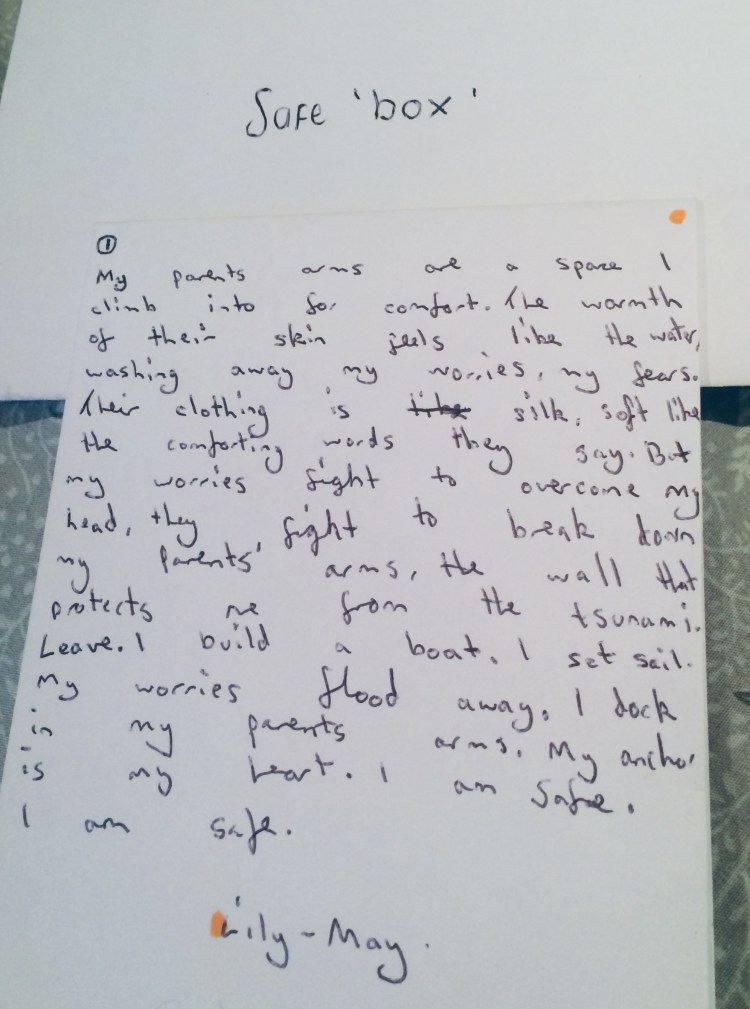 Safe 'box'
①
My parents arms are a space I
climb into for comfort. The warmth
of their skin feels like the water,
washing away my worries, my fears.
Their clothing is like silk, soft like
the comforting words they say. But
my worries fight to overcome my
head, they fight to break down
my parents' arms, the wall that
protects me from the tsunami.
Leave. I build a boat. I set sail.
My worries flood away. I dock
in my parents arms. My anchor
is my heart. I am safe.
I am safe.
Lily-May.